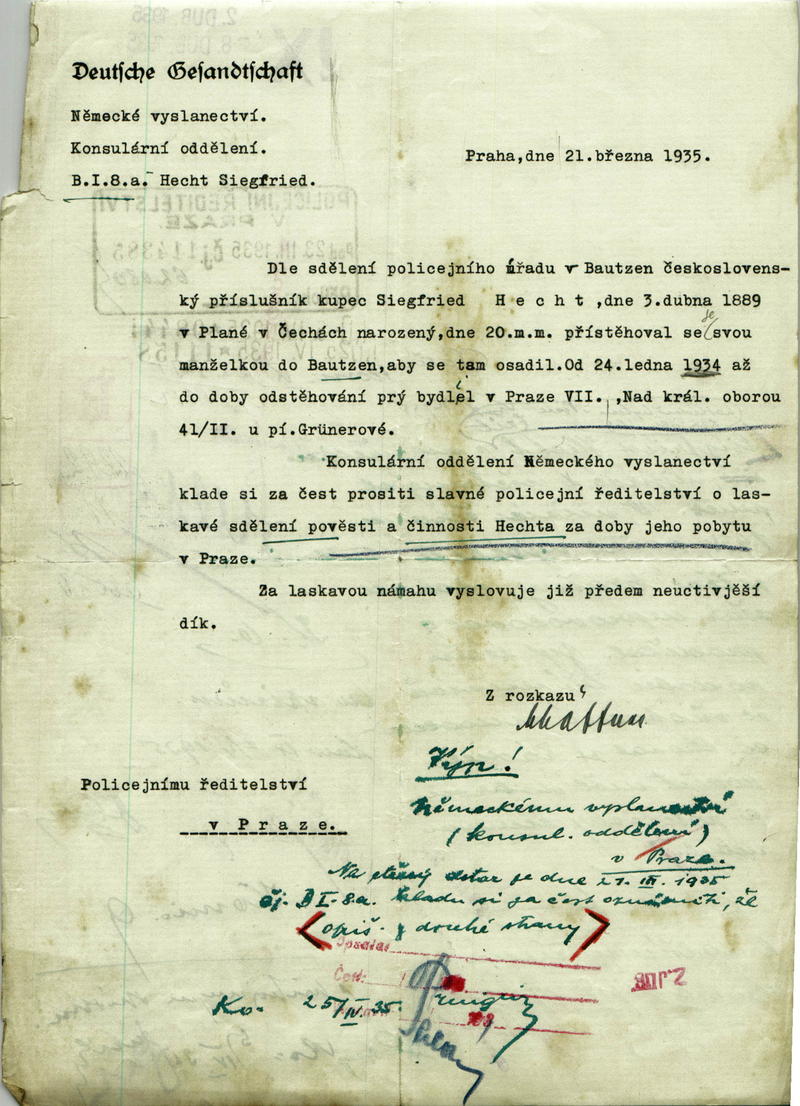 Deutsche Gesandtschaft
Německé vyslanectví.
Konsulární oddělení.
Praha,dne 21.března 1935.
B.I.8.a. Hecht Siegfried.
Dle sdělení policejního úřadu v Bautzen českosloven-
ský příslušník kupec Siegfried H e c h t ,dne 3.dubna 1889
v Plané v Čechách narozený,dne 20.m.m. přistěhoval se se svou
manželkou do Bautzen,aby se tam osadil.Od 24.ledna 1934 až
do doby odstěhování prý bydlel v Praze VII. ,Nad král. oborou
41/II. u pí.Grünerové.
Konsulární oddělení Německého vyslanectví
klade si za čest prositi slavné policejní ředitelství o las-
kavé sdělení pověsti a činnosti Hechta za doby jeho pobytu
v Praze.
Za laskavou námahu vyslovuje již předem neuctivjěší
dík.
Z rozkazu
Policejnímu ředitelství
v P r a z e.
Německému vyslanectví
(konsul. oddělení)
v Praze.
Na ctěný dotaz ze dne 21. III. 1935
čj. B I-8.a. kladu si za čest oznámiti, že
opiš z druhé strany
Ko. 25/IV. 35.